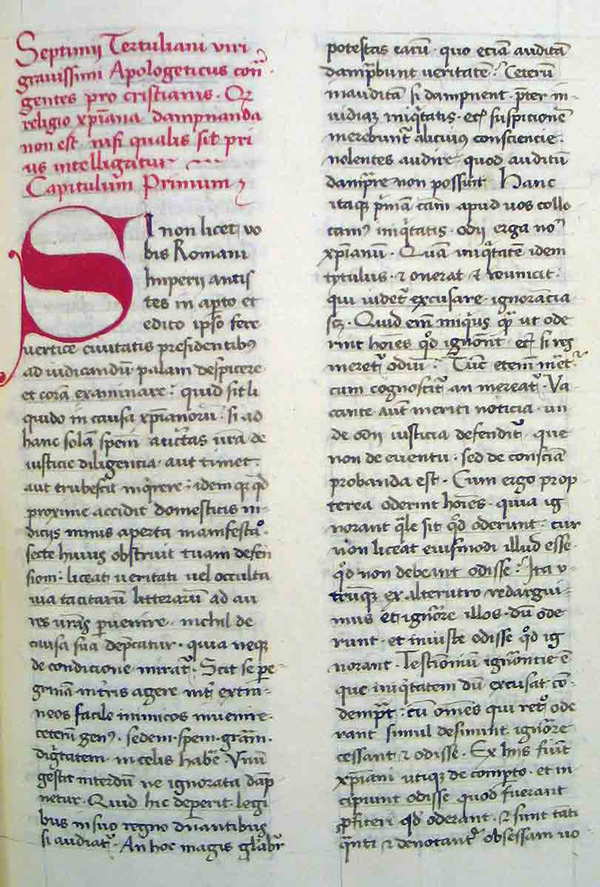 Septimii Tertuliani viri
gravissimi Apologeticus con
gentes pro cristianis. Q
religio xpiana dampnanda
non est nisi qualis sit pri
us intelligatur
Capitulum Primum
SI non licet vo
bis Romani
Imperii antis
tes in apto et
edito ipso fere
vertice civitatis presidentibus
ad iudicandum palam despicere
et cora examinare: quid sit li
quido in causa xpianoru: si ad
hanc sola spem auctas iura de
iusticie diligencia aut timet
aut erubescit inqrere: idemque qd
proxime accidit domesticis in
diciis nimis aperta manifesta
secte huius obstruit viam defen
siom: liceat veritati vel occulta
via tacitaru litteraru ad au
res vras pervenire. nichil de
causa sua depcatur. quia neque
de condicione mirat. Scit se pe
grina in tris agere int extra
neos facile inimicos invenire.
ceteru genus. sedem. spem. gram.
dignitatem in celis habe. Unu
gestit interdu ne ignorata dap
netur. Quid hic deperit legi
bus in suo regno dnantibus
si audiat. An hoc magis glabr
potestas earu. quo eciam audita
dampbunt veritate: Ceteru
inaudita si dampnent. pter in
vidiaz iniqtatis. et suspitione
merebunt alicuius consciencie.
nolentes audire quod auditu
dampre non possint Hanc
itaque prima cam apud vos collo
cam iniqtatis. odii erga no
xpianu. Qua iniqtate idem
tytulus. et onerat et revincit.
qui videt excusare. ignorancia
scz. Quid em iniqus qua ut ode
rint hoies qd ignorat. et si res
meret odiu: Tuc etem met
cum cognoscit an mereat. Va
cante aut meriti noticia. un
de odii iusticia defendit. que
non de eventu. sed de conscia
probanda est. Cum ergo prop
terea oderint hoies. quia ig
norant qle sit qd oderunt. cur
non liceat eiusmodi illud esse
qd non debeant odisse: Ita u
trumque ex alterutro redargui
mus et ignore illos. du ode
runt. et iniuste odisse qd ig
norant. Testimoniu ignorancie e
que iniqtatem du excusat co
dempt: cu omes qui retro ode
rant simul desinunt ignore
cessant et odisse. Ex hiis fiunt
xpiani utique de compto. et in
cipiunt odisse quod fuerant
pfiteri qd oderant. et sunt tati
qnti et denotant obsessam vo